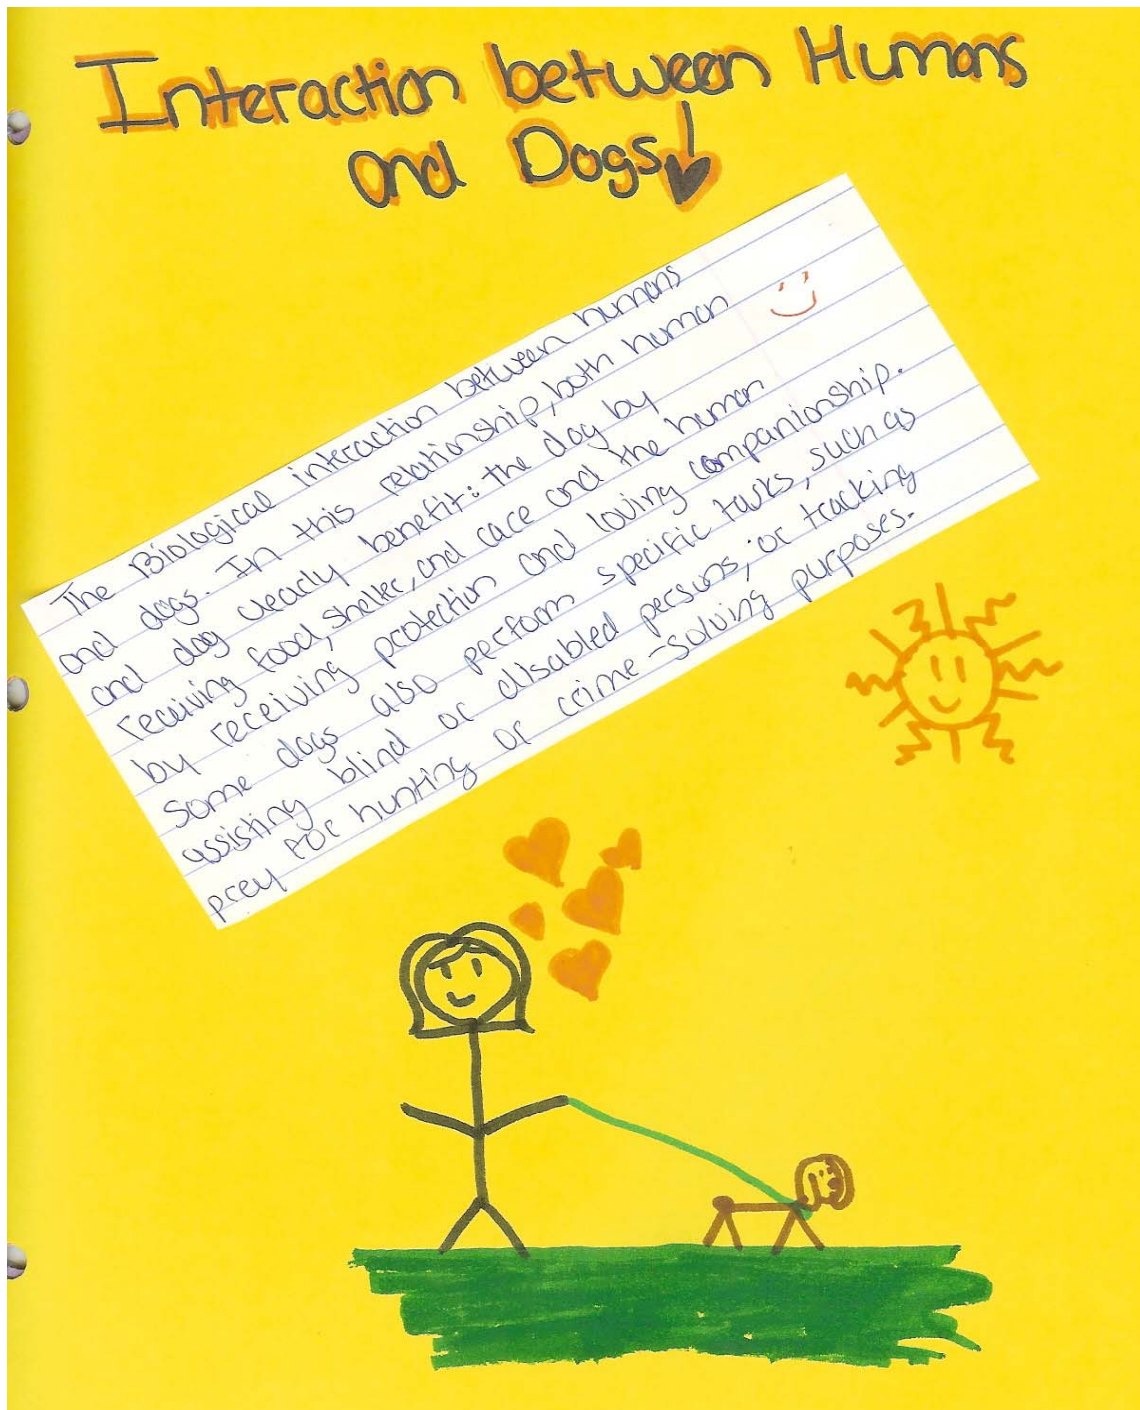 Interaction between Humans
and Dogs
The Biological interaction between humans
and dogs. In this relationship, both human
and dog clearly benefit: the dog by
receiving food, shelter, and care and the human
by receiving protection and loving companionship.
Some dogs also perform specific tasks, such as
assisting blind or disabled persons, or tracking
prey for hunting or crime-solving purposes.